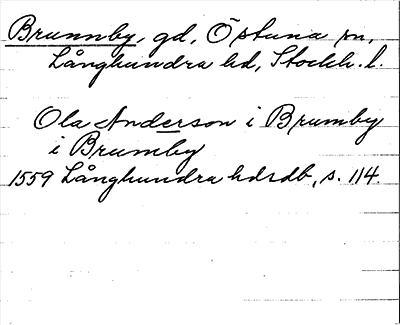 Brunnby, gd, Östuna sn,
Långhundra hd, Stockh. l.
Ola Anderson i Brumby
i Brumby
1559 Långhundra hdrdb, s. 114.